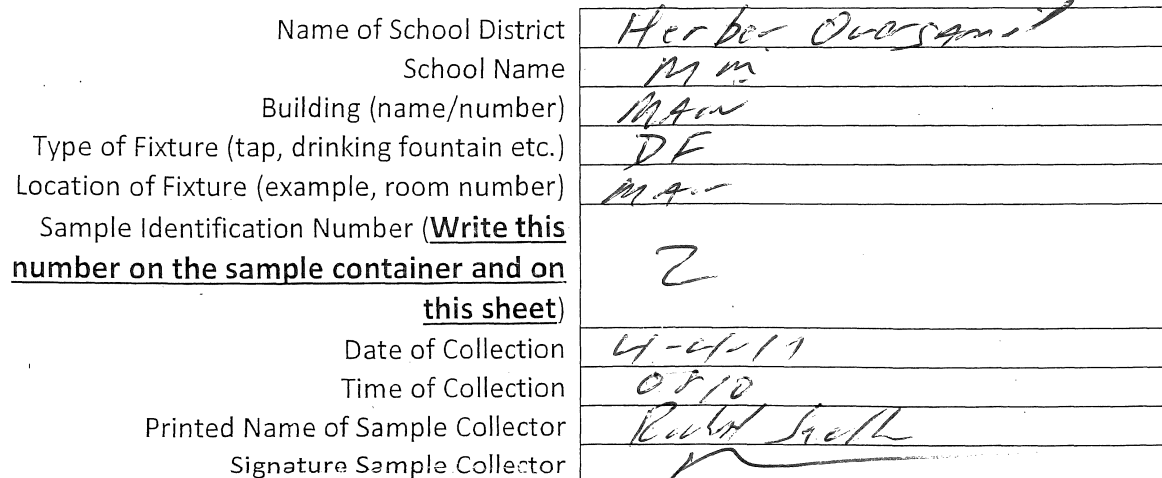 Name of School District Heber Overgaard
School Name M m
Building (name/number) MAIN
Type of Fixture (tap, drinking fountain etc.) DF
Location of Fixture (example, room number)
Sample Identification Number (Write this
number on the sample container and on
this sheet) 2
Date of Collection
Time of Collection 0810
Printed Name of Sample Collector
Signature Sample Collector